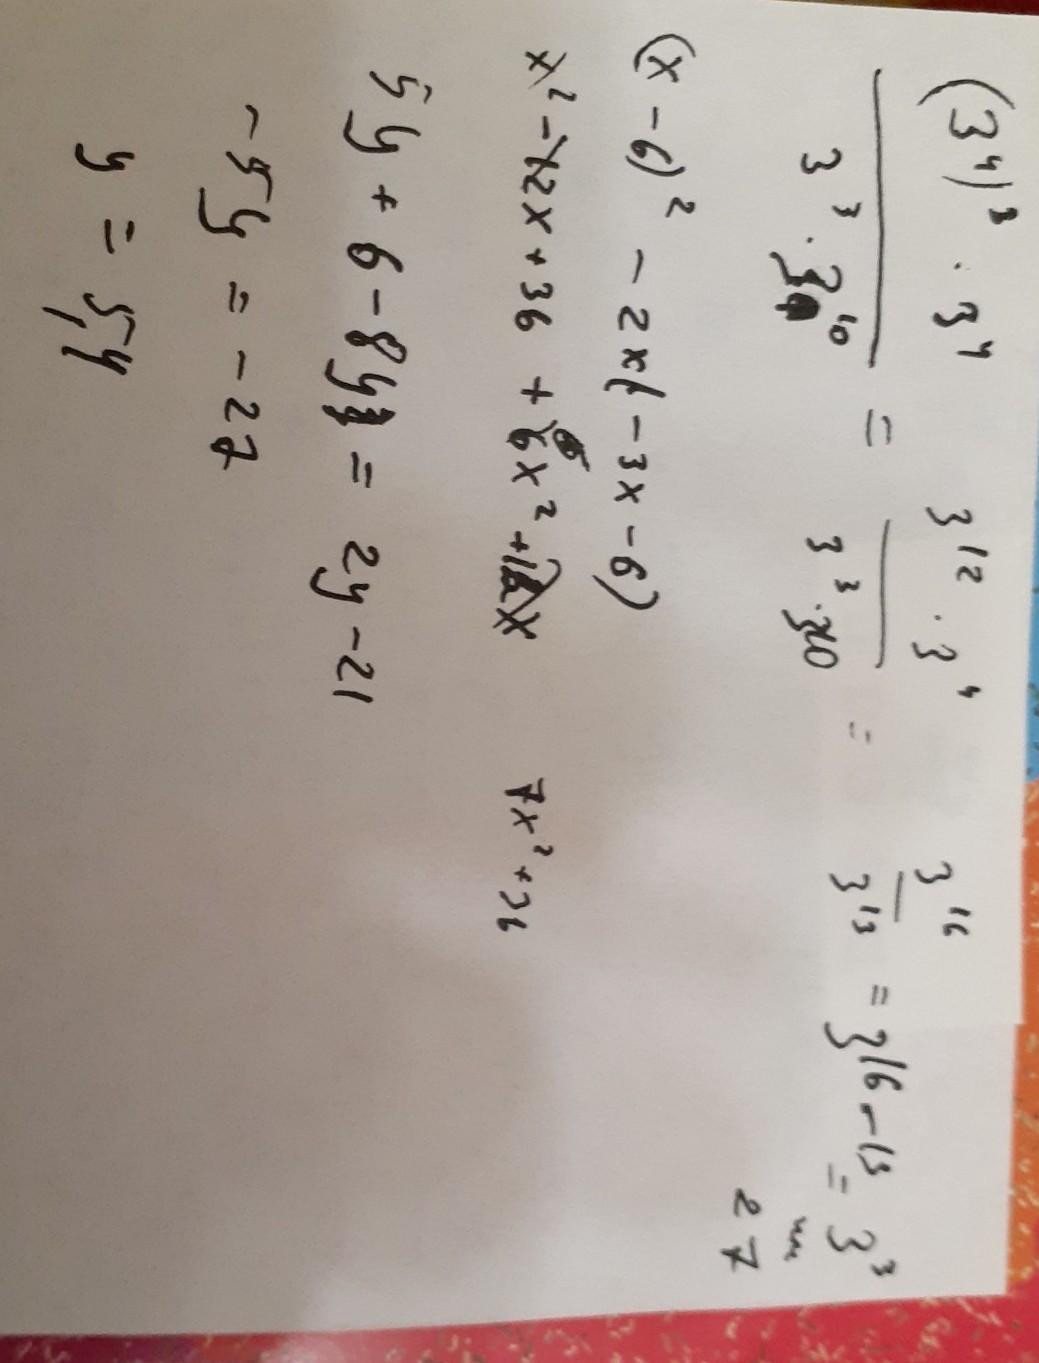 (3⁴)³ · 3⁴ / 3³ · 3¹⁰ = 3¹² · 3⁴ / 3³ · 3¹⁰ = 3¹⁶ / 3¹³ = 3¹⁶⁻¹³ = 3³
27
(x - 6)² - 2x(-3x - 6)
x² - 12x + 36 + 6x² + 12x 7x² + 36
5y + 6 - 8y = 2y - 21
-5y = -27
y = 5,4